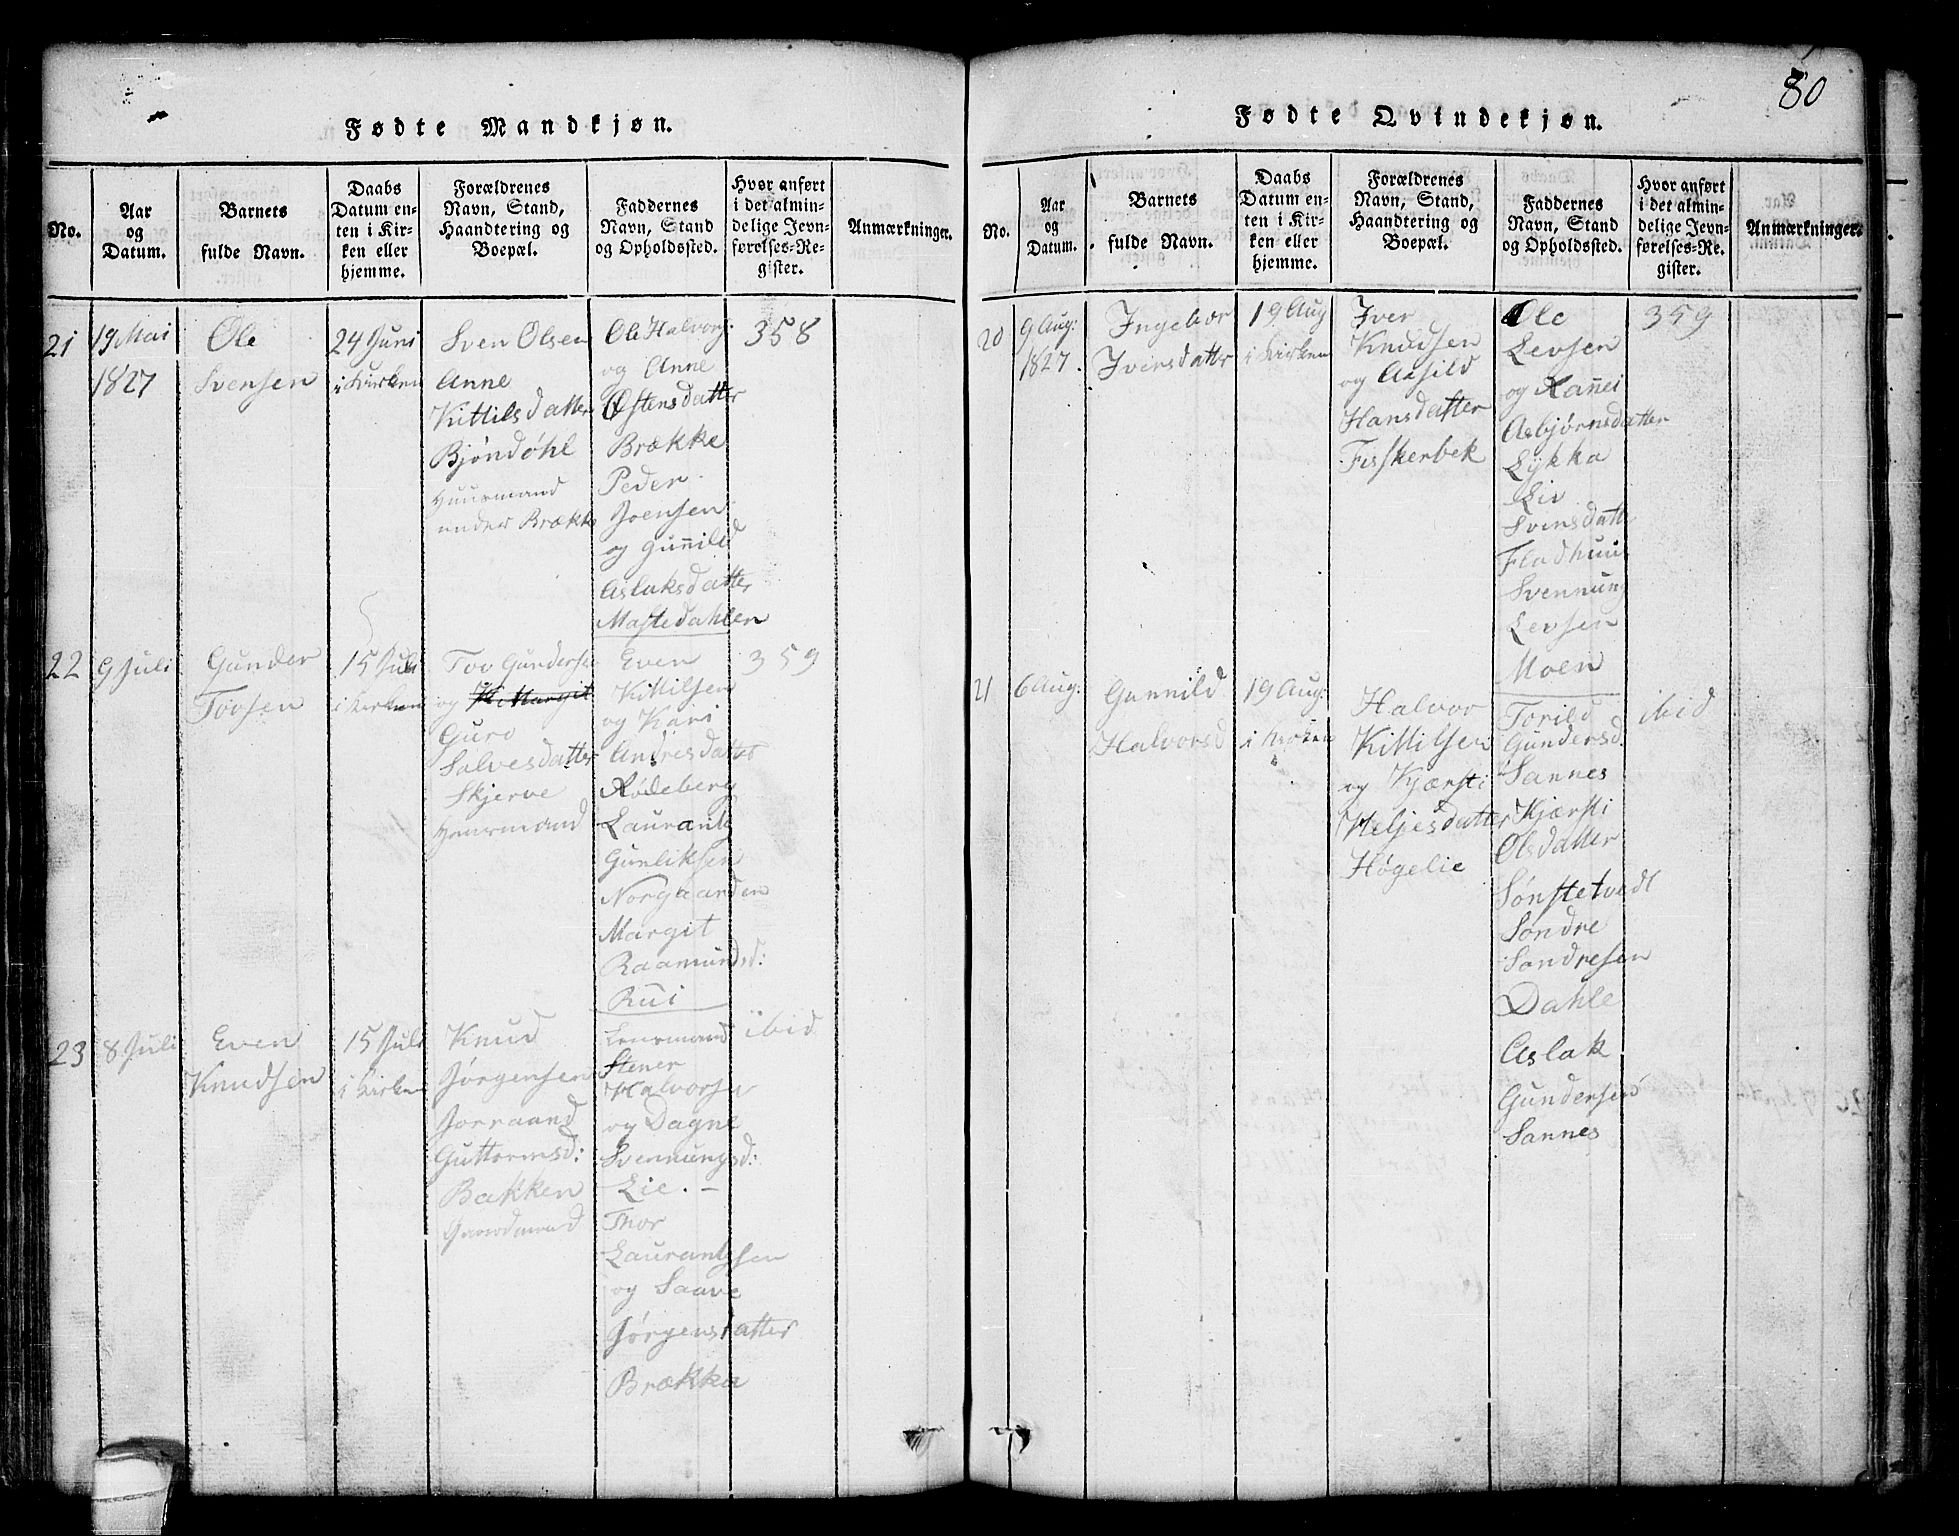 80
Fødte Mandkjøn.
No.
Aar
og
Datum.
Barnets
fulde Navn.
Daabs
Datum en-
ten i Kir-
ken eller
hjemme.
Forældrenes
Navn, Stand,
Haandtering og
Boepæl.
Faddernes
Navn, Stand
og Opholdssted.
Hvor anført
i det almin-
delige Jevn-
førelses-Re-
gister.
Anmærkninger.
21
19 Mai
1827
Ole
Svensen
24 Juni
i Kirken
Sven Olsen
Anne
Kittilsdatter
Bjöndöhl
Huusmand
under Brække
Ole Halvors.
og Anne
Østensdatter
Brække
Peder
Joensen
og Gunnild
Aslaksdatter
Mastedahlen
358
22
9 Juli
Gunder
Tovsen
15 Juli
i Kirken
Tov Gundersen
og K Margit
Guro
Salvesdatter
Skjerve
Huusmand
Even
Kittilsen
og Kari
Andresdatter
Rödeberg
Laurants
Gunliksen
Norgaarden
Margit
Raamundsd:
Rui
359
23
8 Juli
Even
Knudsen
15 Juli
i Kirken
Knud
Jörgensen
Jorraand
Guttormsd:
Bakken
Gaardmand
Lensmand
Stener
Halvorsen
og Dagne
Svennungsd:
Lie. –
Thor
Laurantsen
og Saave
Jörgensdatter
Brækka
ibid
Fødte Qvindekjøn.
No.
Aar
og
Datum.
Barnets
fulde Navn.
Daabs
Datum en-
ten i Kir-
ken eller
hjemme.
Forældrenes
Navn, Stand,
Haandtering og
Boepæl.
Faddernes
Navn, Stand
og Opholdssted.
Hvor anført
i det almin-
delige Jevn-
førelses-Re-
gister.
Anmærkninger.
20
9 Aug:
1827.
Ingebor
Iversdatter
19 Aug
i Kirken
Iver
Knudsen
og Aasild
Hansdatter
Fiskerbek
Ole
Levsen
og Rannei
Asbjørnsdatter
Lykka
Liv
Svensdatt
Fladhuus
Svennung
Levsen
Moen
359
21
6 Aug:
Gunnild
Halvorsd
19 Aug:
i Kirken
Halvor
Kittilsen
og Kjærsti
Heljesdatter
Høgelie
Torild
Gundersd.
Sannes
Kjærsti
Olsdatter
Sønstetvedt
Søndre
Sondresen
Dahle
Aslak
Gundersen
Sannes
ibid